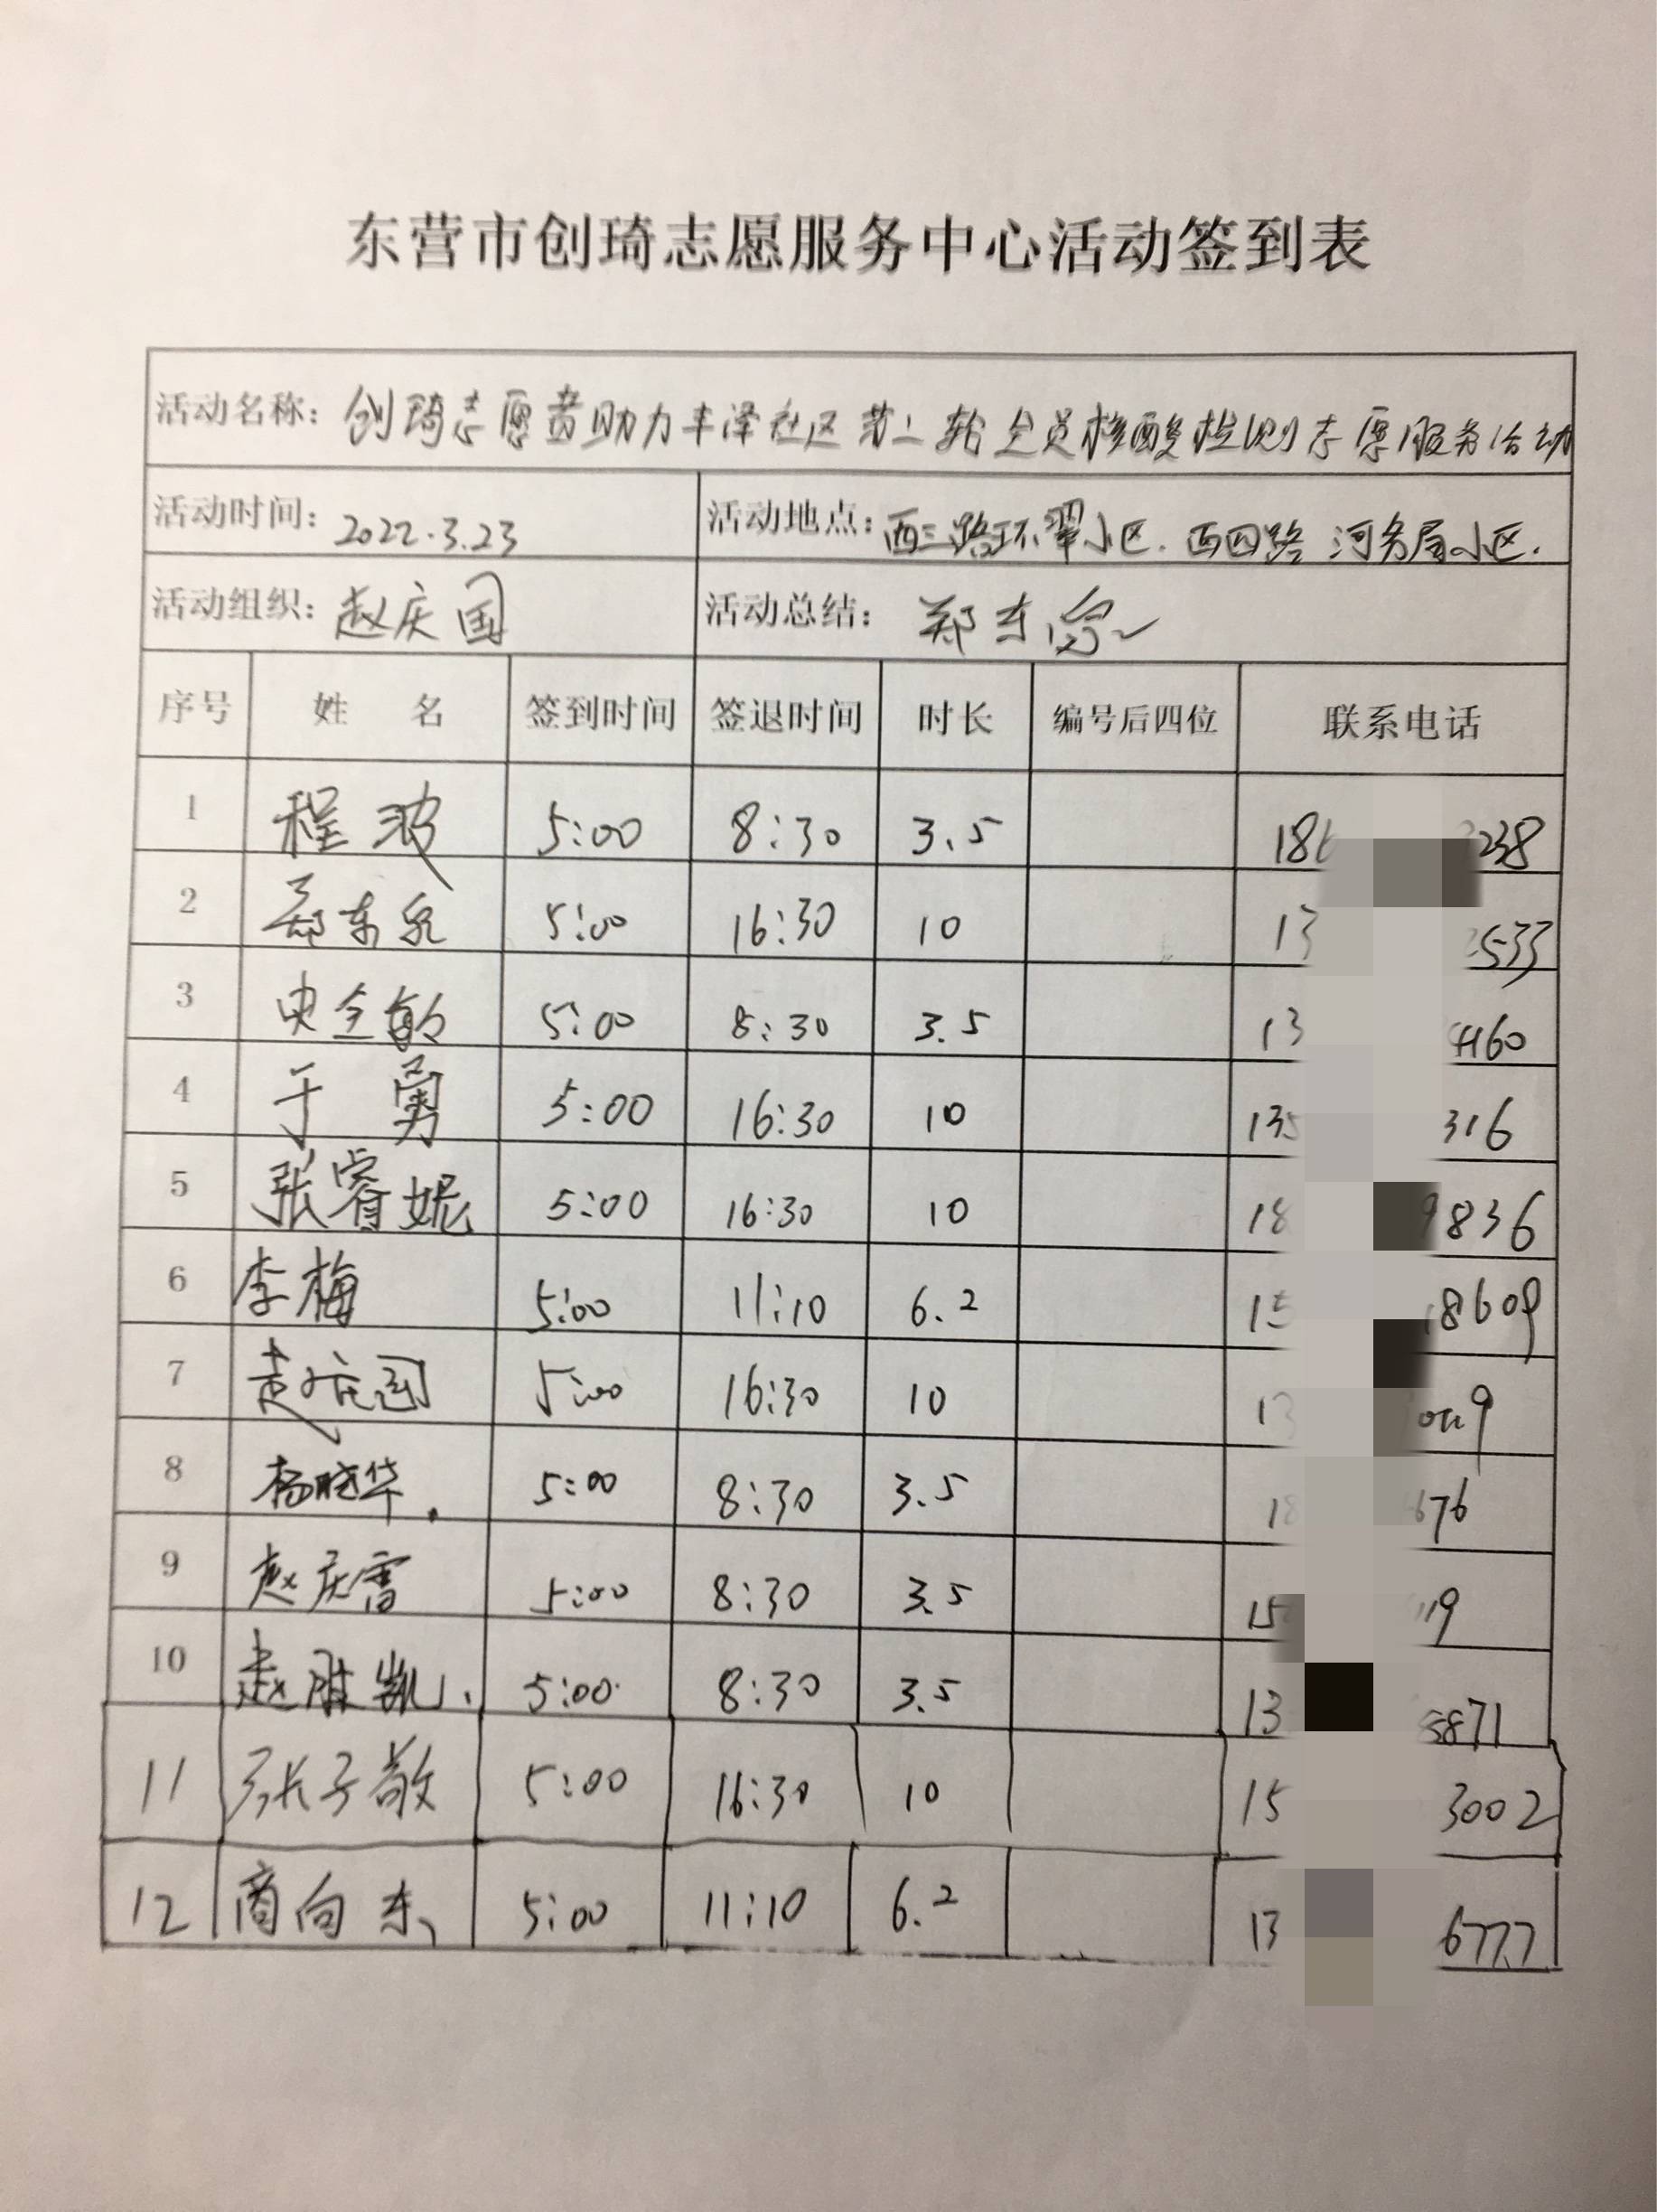 东营市创琦志愿服务中心活动签到表
活动名称：创琦志愿者助力丰泽社区第二轮全员核酸检测志愿服务活动
活动时间：2022.3.23 活动地点：西三路环翠小区.西四路 河务局小区.
活动组织：赵庆国 活动总结：郑东
序号 姓 名 签到时间 签退时间 时长 编号后四位 联系电话
1 程波 5:00 8:30 3.5 186 238
2 郑东 5:00 16:30 10 13 2533
3 5:00 8:30 3.5 13 4160
4 于勇 5:00 16:30 10 135 316
5 张睿妮 5:00 16:30 10 18 9836
6 李梅 5:00 11:10 6.2 15 8609
7 赵庆国 5:00 16:30 10 13
8 杨晓华. 5:00 8:30 3.5 18 676
9 赵庆雷 5:00 8:30 3.5 15 119
10 赵胜凯. 5:00 8:30 3.5 13 5871
11 张子敬 5:00 16:30 10 15 3002
12 商向东 5:00 11:10 6.2 13 6777